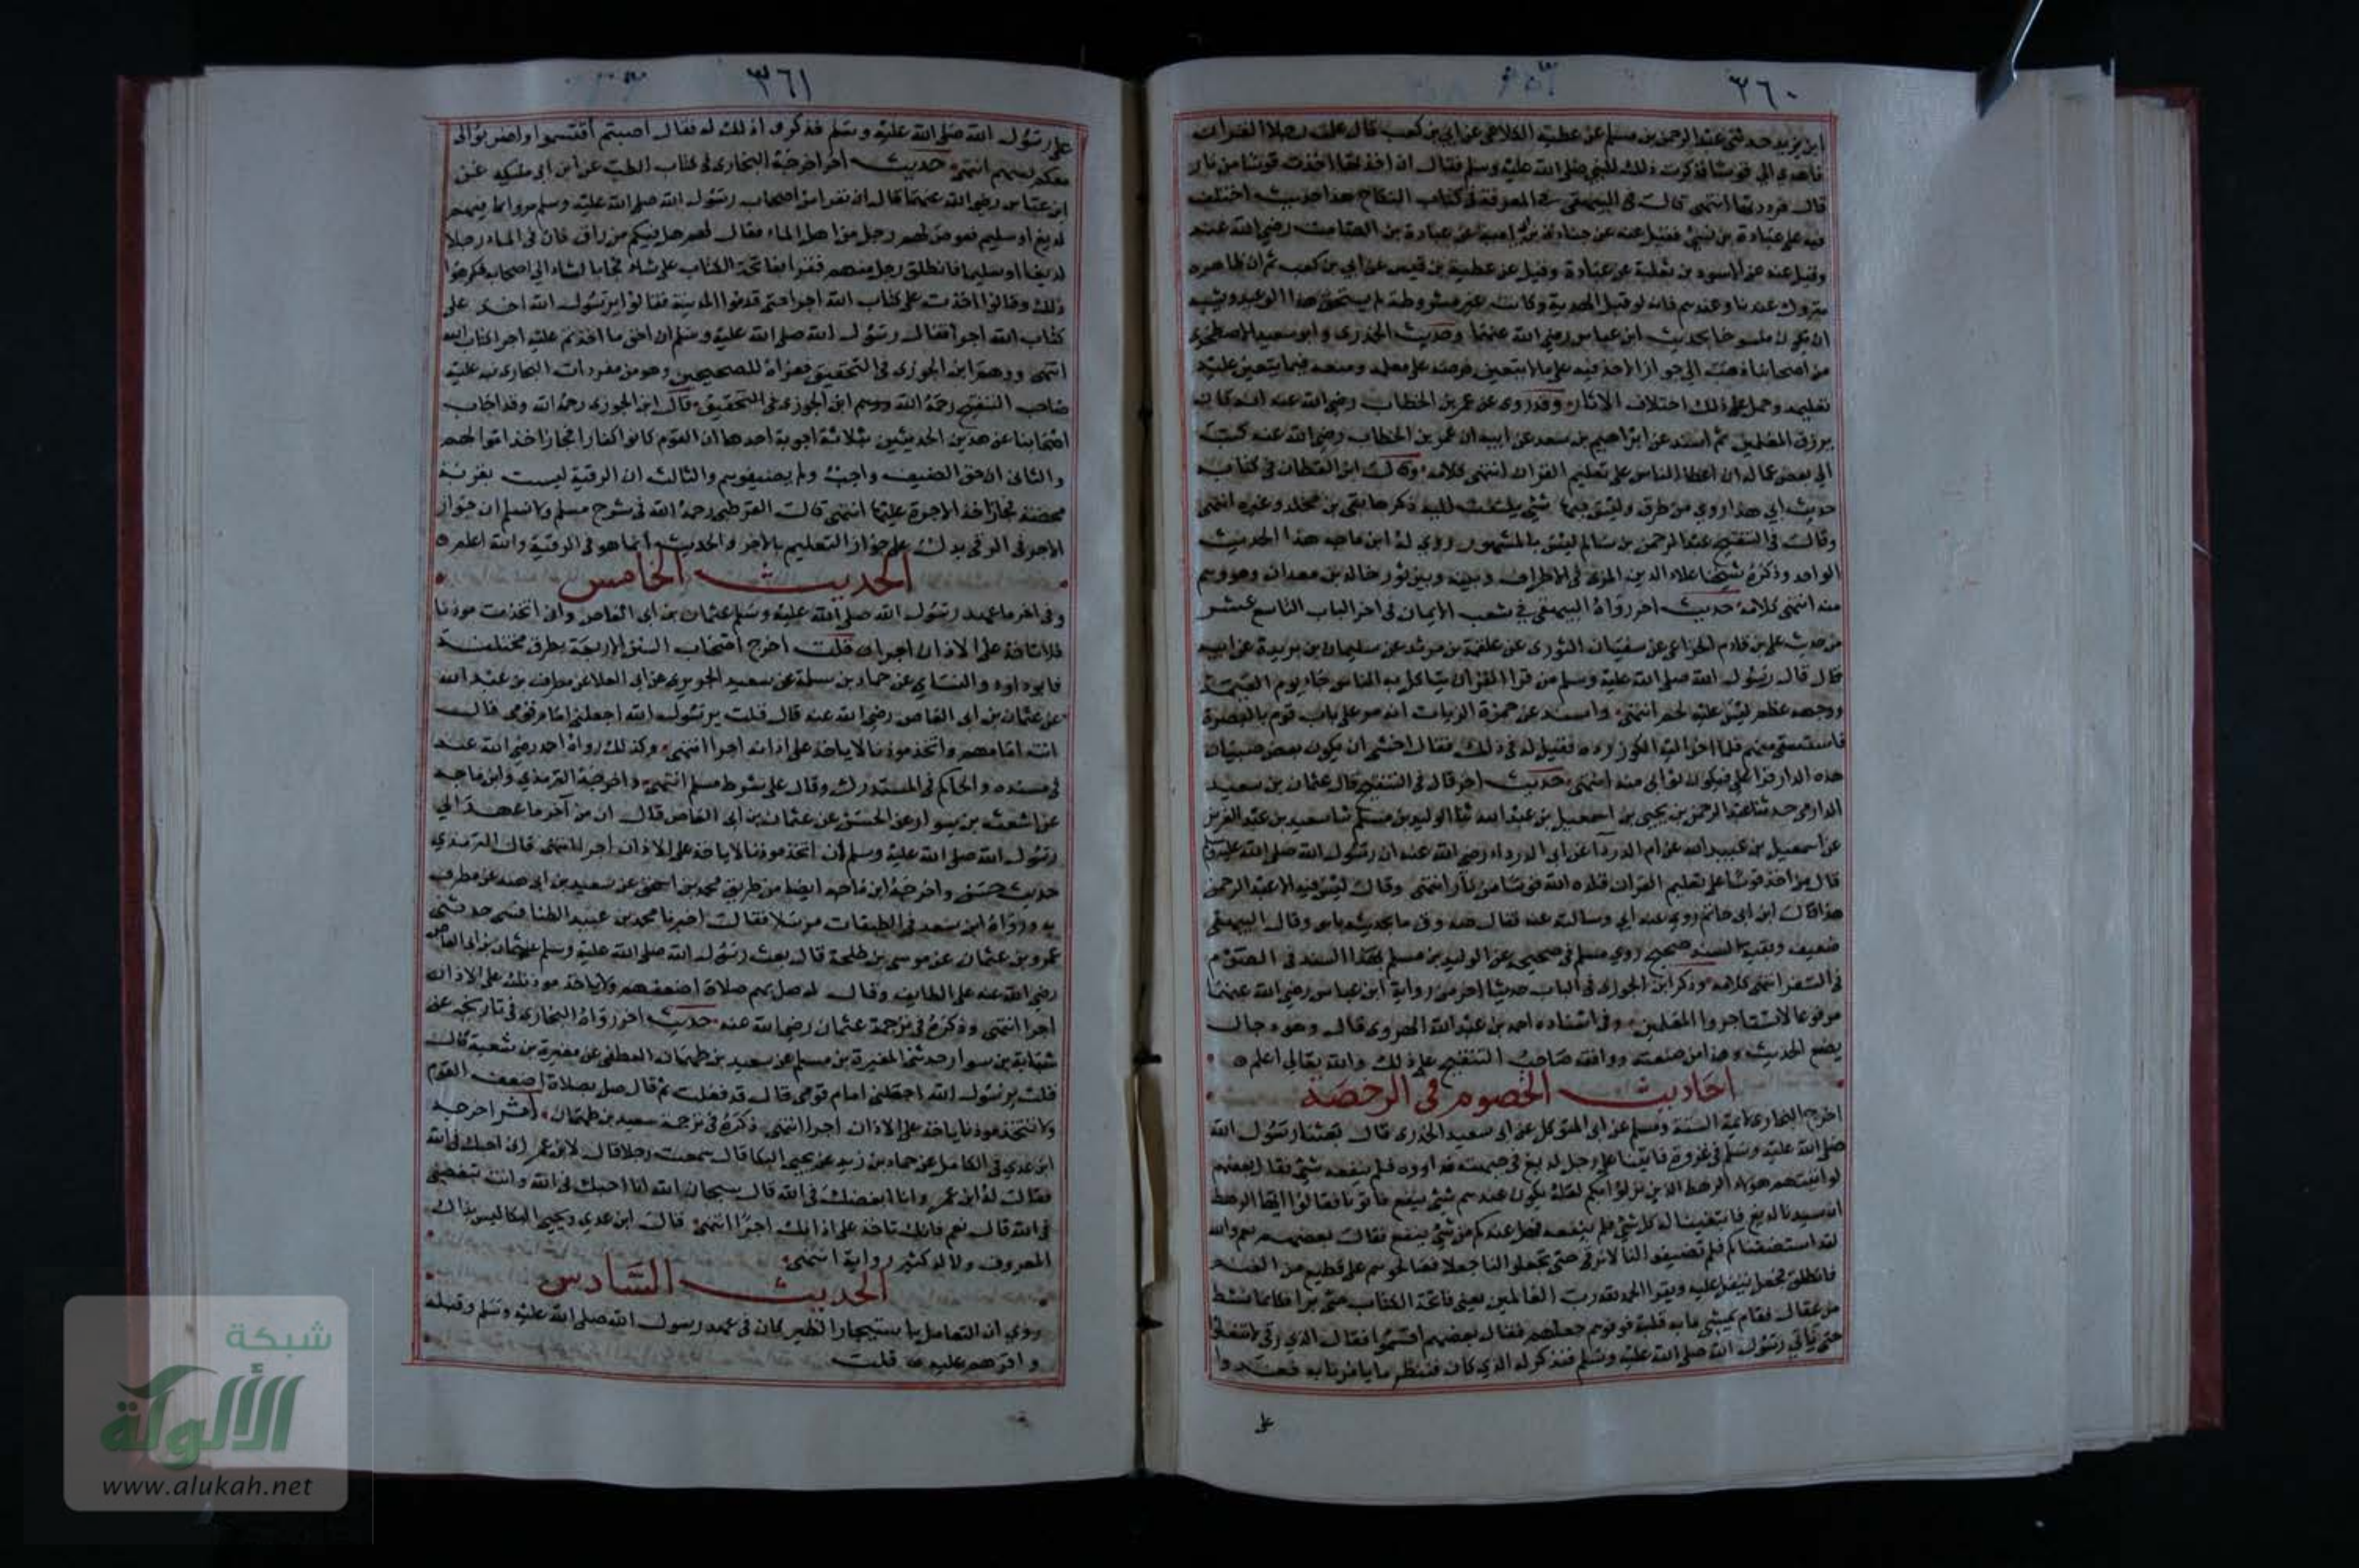 ٣٦٠
ابن يزيد حدثني عبد الرحمن بن مسلم عن عطية الكلاعي عن ابي بن كعب قال علمت رجلا القران
فاهدي الي قوسا فذكرت ذلك للنبي صلى الله عليه وسلم فقال ان اخذتها اخذت قوسا من نار
قال فرددتها انتهى قال البيهقي في المعرفة في كتاب النكاح هذا حديث اختلف
فيه على عبادة بن نسي فقيل عنه عن جنادة بن ابي امية عن عبادة بن الصامت رضي الله عنه
وقيل عنه عن الاسود بن ثعلبة عن عبادة وقيل عن عطية بن قيس عن ابي بن كعب ثم ان ظاهره
متروك عندنا وعندهم فانه لو قبل الهدية وكانت غير مشروطة لم يستحق هذا الوعيد ويشبه
ان يكون منسوخا بحديث ابن عباس رضي الله عنهما وحديث الخدري وابو سعيد الاصطخري
من اصحابنا ذهب الى جواز الاخذ فيه على ما لا يتعين فرضه على معلمه ومنعه فيما يتعين عليه
تعليمه وحمل على ذلك اختلاف الاثار وقد روى عن عمر بن الخطاب رضي الله عنه انه كان
يرزق المعلمين ثم اسند عن ابراهيم بن سعد عن ابيه ان عمر بن الخطاب رضي الله عنه كتب
الى بعض عماله ان اعط الناس على تعليم القران انتهى كلامه وقال ابن القطان في كتابه
حديث ابي هذا روي من طرق وليس فيها شئ يلتفت اليه ذكرها بقي بن مخلد وغيره انتهى
وقال في التنقيح عبد الرحمن بن سالم ليس بالمشهور روى له ابن ماجه هذا الحديث
الواحد وذكره شيخنا علاء الدين المزي في الاطراف وبينه وبين ثور خالد بن معدان وهو وهم
منه انتهى كلامه حديث اخر رواه البيهقي في شعب الايمان في اخر الباب التاسع عشر
من حديث علي بن قادم الخزاعي عن سفيان الثوري عن علقمة بن مرثد عن سليمان بن بريدة عن ابيه
قال قال رسول الله صلى الله عليه وسلم من قرا القران يتاكل به الناس جاء يوم القيمة
ووجهه عظم ليس عليه لحم انتهى واسند عن حمزة الزيات انه مر على باب قوم بالبصرة
فاستسقى منهم فلما اخرج اليه الكوز رده فقيل له في ذلك فقال اخشى ان يكون بعض صبيان
هذه الدار قرا علي فيكون ثوابي منه انتهى حديث اخر قال في التنقيح قال عثمان بن سعيد
الدارمي حدثنا عبد الرحمن بن يحيى بن اسمعيل بن عبد الله ثنا الوليد بن مسلم ثنا سعيد بن عبد العزيز
عن اسمعيل بن عبيد الله عن ام الدرداء عن ابي الدرداء رضي الله عنه ان رسول الله صلى الله عليه وسلم
قال من اخذ قوسا على تعليم القران قلده الله قوسا من نار انتهى وقال ليس فيه الا عبد الرحمن
هذا قال ابن ابي حاتم روى عنه ابي وسالته عنه فقال صدوق ما بحديثه باس وقال البيهقي
ضعيف وبقية السند صحيح روى مسلم في صحيحه عن الوليد بن مسلم بهذا السند في الصوم
في السفر انتهى كلامه وذكر ابن الجوزي في الباب حديثا اخر من رواية ابن عباس رضي الله عنهما
مرفوعا لا تستاجروا المعلمين وفي اسناده احمد بن عبد الله الهروي قال وهو دجال
يضع الحديث وهذا من صنعته ووافقه صاحب التنقيح على ذلك والله تعالى اعلم
احاديث الخصوم في الرخصة
اخرج البخاري ائمة الستة ومسلم عن ابي المتوكل عن ابي سعيد الخدري قال بعثنا رسول الله
صلى الله عليه وسلم في غزوة فاتينا على رجل لديغ في جبهته فداووه فلم ينفعه شئ فقال بعضهم
لو اتيتم هولاء الرهط الذين نزلوا بكم لعله يكون عندهم شئ ينفع فاتونا فقالوا ايها الرهط
ان سيدنا لديغ فابتغينا له كل شئ فلم ينفعه فهل عندكم من شئ ينفع فقال بعضهم نعم والله
لقد استضفناكم فلم تضيفونا لا نرقي حتى تجعلوا لنا جعلا فصالحوهم على قطيع من الغنم
فانطلق فجعل يتفل عليه ويقرا الحمد لله رب العالمين يعني فاتحة الكتاب حتى برا فكانما نشط
من عقال فقام يمشي ما به قلبة فوفوهم جعلهم فقال بعضهم اقسموا فقال الذي رقى لا تفعلوا
حتى ناتي رسول الله صلى الله عليه وسلم فنذكر له الذي كان فننظر ما يامرنا به فغدوا
على
٣٦١
على رسول الله صلى الله عليه وسلم فذكروا ذلك له فقال اصبتم اقتسموا واضربوا لي
معكم بسهم انتهى حديث اخر اخرجه البخاري في كتاب الطب عن ابن ابي مليكه عن
ابن عباس رضي الله عنهما قال ان نفرا من اصحاب رسول الله صلى الله عليه وسلم مروا بماء فيهم
لديغ او سليم فعرض لهم رجل من اهل الماء فقال لهم هل فيكم من راق فان في الماء رجلا
لديغا او سليما فانطلق رجل منهم فقرا بفاتحة الكتاب على شاء فجا بالشاء الى اصحابه فكرهوا
ذلك وقالوا اخذت على كتاب الله اجرا حتى قدموا المدينة فقالوا يرسول الله اخذ على
كتاب الله اجرا فقال رسول الله صلى الله عليه وسلم ان احق ما اخذتم عليه اجرا كتاب الله
انتهى ووهم ابن الجوزي في التحقيق فعزاه للصحيحين وهو من مفردات البخاري نبه عليه
صاحب التنقيح رحمه الله ووهم ابن الجوزي في التحقيق قال ابن الجوزي رحمه الله وقد اجاب
اصحابنا عن هذين الحديثين بثلاثة اجوبة احدها ان القوم كانوا كفارا فجاز اخذ اموالهم
والثاني ان حق الضيف واجب ولم يضيفوهم والثالث ان الرقية ليست بقربة
محضة فجاز اخذ الاجرة عليها انتهى قال القرطبي رحمه الله في شرح مسلم ولا نسلم ان جواز
الاجر في الرقى يدل على جواز التعليم بالاجر والحديث انما هو في الرقية والله اعلم
الحديث الخامس
وفي اخر ما عهد رسول الله صلى الله عليه وسلم عثمان بن ابي العاص وان اتخذت موذنا
فلا تاخذ على الاذان اجرا قلت اخرج اصحاب السنن الاربعة بطرق مختلفة
فابو داود والنساي عن حماد بن سلمة عن سعيد الجريري عن ابي العلا عن مطرف بن عبد الله
عن عثمان بن ابي العاص رضي الله عنه قال قلت يرسول الله اجعلني امام قومي قال
انت امامهم واتخذ موذنا لا ياخذ على اذانه اجرا انتهى وكذلك رواه احمد رضي الله عنه
في مسنده والحاكم في المستدرك وقال على شرط مسلم انتهى واخرجه الترمذي وابن ماجه
عن اشعث بن سوار عن الحسن عن عثمان بن ابي العاص قال ان من آخر ما عهد الي
رسول الله صلى الله عليه وسلم ان اتخذ موذنا لا ياخذ على الاذان اجرا انتهى قال الترمذي
حديث حسن واخرجه ابن ماجه ايضا من طريق محمد بن اسحق عن سعيد بن ابي هند عن مطرف
به ورواه ابن سعد في الطبقات مرسلا فقال اخبرنا محمد بن عبيد الطنافسي حدثني
عمرو بن عثمان عن موسى بن طلحة قال بعث رسول الله صلى الله عليه وسلم عثمان بن ابي العاص
رضي الله عنه على الطايف وقال له صل بهم صلاة اضعفهم ولا ياخذ موذنك على الاذان
اجرا انتهى وذكره في ترجمة عثمان رضي الله عنه حديث اخر رواه البخاري في تاريخه عن
شبابة بن سوار حدثني المغيرة بن مسلم عن سعيد بن طهمان القطعي عن مغيرة بن شعبة قال
قلت يرسول الله اجعلني امام قومي قال قد فعلت ثم قال صل بصلاة اضعف القوم
ولا تتخذ موذنا ياخذ على الاذان اجرا انتهى ذكره في ترجمة سعيد بن طهمان اثر اخرجه
ابن عدي في الكامل عن حماد بن زيد عن يحيى البكا قال سمعت رجلا قال لابن عمر اني احبك في الله
فقال له ابن عمر وانا ابغضك في الله قال سبحان الله انا احبك في الله وانت تبغضني
في الله قال نعم فانك تاخذ على اذانك اجرا انتهى قال ابن عدي ويحيى البكا ليس بذاك
المعروف ولا له كثير رواية انتهى
الحديث السادس
روي ان التعامل باستيجار الظير كان في عهد رسول الله صلى الله عليه وسلم وقبله
واقرهم عليه قلت
شبكة
الألوكة
www.alukah.net